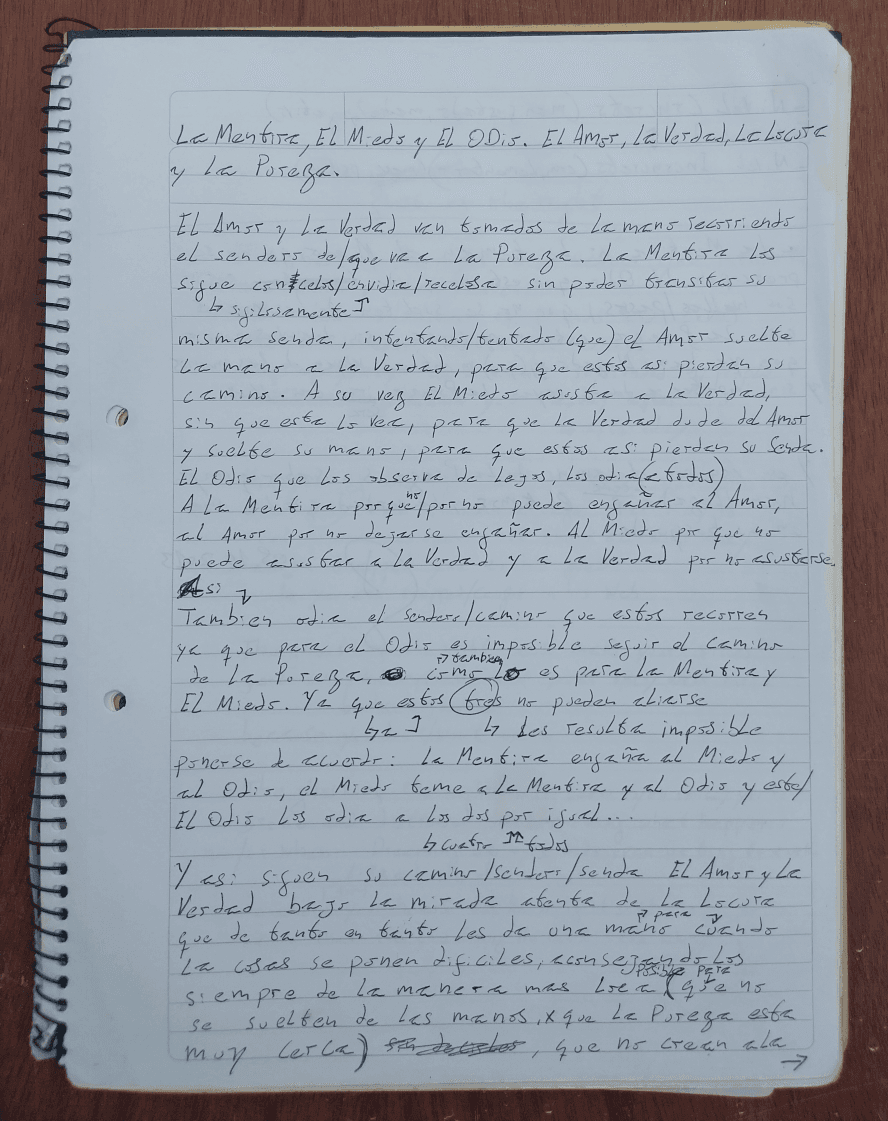 La Mentira, El Miedo y El Odio. El Amor, La Verdad, La Locura
y La Pureza.
El Amor y La Verdad van tomados de la mano recorriendo
el sendero de/que va a La Pureza. La Mentira los
sigue con celos/envidia/recelosa sin poder transitar su
↳ sigilosamente
misma senda, intentando/tentado (que) el Amor suelte
La mano a La Verdad, para que estos asi pierdan su
camino. A su vez El Miedo asusta a La Verdad,
sin que esta lo vea, para que La Verdad dude del Amor
y suelte su mano, para que estos asi pierdan su Senda.
El Odio que los observa de Lejos, los odia (a todos)
A La Mentira porque/por no puede engañar al Amor,
no
al Amor por no dejarse engañar. Al Miedo por que no
puede asustar a la Verdad y a la Verdad por no asustarse.
Asi
Tambien odia el sendero/camino que estos recorren
ya que para el Odio es imposible seguir el camino
→ tambien
de La Pureza, como lo es para La Mentira y
El Miedo. Ya que estos tres no pueden aliarse
↳ a ↳ Les resulta imposible
ponerse de acuerdo: La Mentira engaña al Miedo y
al Odio, el Miedo teme a La Mentira y al Odio y este/
El Odio Los odia a Los dos por igual...
↳ cuatro todos
Y asi siguen su camino/sendero/senda El Amor y La
Verdad bajo La mirada atenta de La Locura
→ para
que de tanto en tanto Les da una mano cuando
La cosas se ponen dificiles, aconsejandoLos
posible para
siempre de La manera mas Loca (que no
se suelten de las manos, x que La Pureza esta
muy cerca) , que no crean a la
→